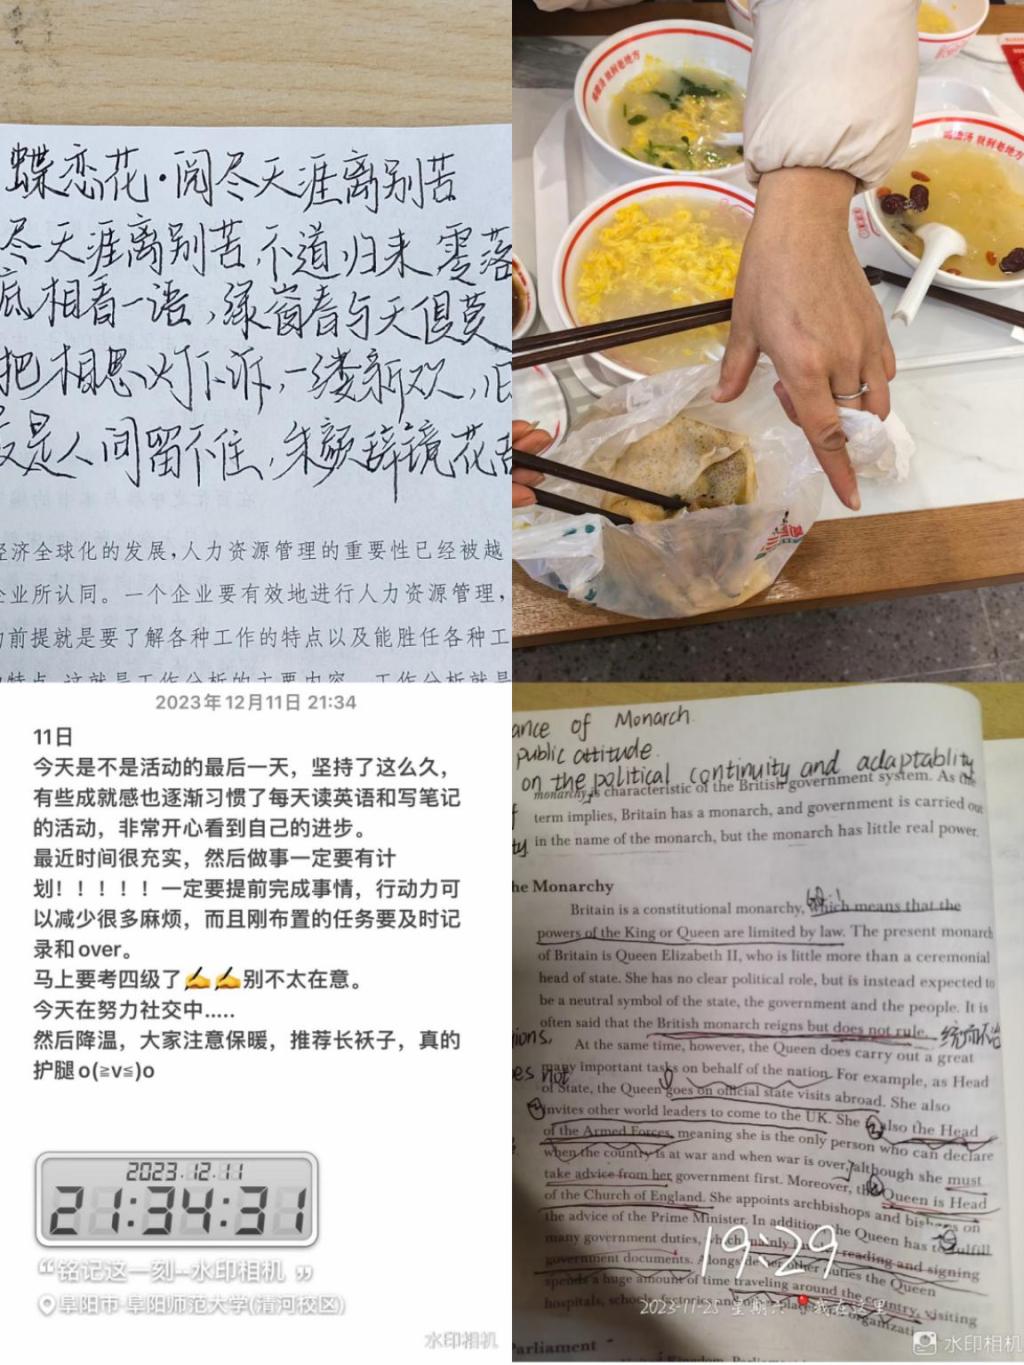 蝶恋花·阅尽天涯离别苦
尽天涯离别苦,不道归来零落
底相看一语,绿窗春与天俱莫
把相思灯下诉,一缕新欢,旧
最是人间留不住,朱颜辞镜花
经济全球化的发展,人力资源管理的重要性已经被越
企业所认同。一个企业要有效地进行人力资源管理,
前提就是要了解各种工作的特点以及能胜任各种工
的特点,这就是工作分析的主要内容。工作分析就是
喝滋汤 就到老地方
2023年12月11日 21:34
11日
今天是不是活动的最后一天，坚持了这么久，
有些成就感也逐渐习惯了每天读英语和写笔记
的活动，非常开心看到自己的进步。
最近时间很充实，然后做事一定要有计
划！！！！！一定要提前完成事情，行动力可
以减少很多麻烦，而且刚布置的任务要及时记
录和over。
马上要考四级了✍️✍️别不太在意。
今天在努力社交中.....
然后降温，大家注意保暖，推荐长袄子，真的
护腿o(≧v≦)o
2023.12.11
21:34:31
“铭记这一刻--水印相机”
阜阳市·阜阳师范大学(清河校区)
水印相机
ance of Monarch
public attitude.
on the political continuity and adaptablity
monarchy is characteristic of the British government system. As the
term implies, Britain has a monarch, and government is carried out
in the name of the monarch, but the monarch has little real power.
he Monarchy
Britain is a constitutional monarchy, which means that the
powers of the King or Queen are limited by law. The present monarch
of Britain is Queen Elizabeth II, who is little more than a ceremonial
head of state. She has no clear political role, but is instead expected to
be a neutral symbol of the state, the government and the people. It is
often said that the British monarch reigns but does not rule. 统而不治
ions. At the same time, however, the Queen does carry out a great
oes not many important tasks on behalf of the nation. For example, as Head
of State, the Queen goes on official state visits abroad. She also
invites other world leaders to come to the UK. She also the Head
of the Armed Forces, meaning she is the only person who can declare
when the country is at war and when war is over, although she must
take advice from her government first. Moreover, the Queen is Head
of the Church of England. She appoints archbishops and bishops on
the advice of the Prime Minister. In addition, the Queen has to fulfill
many government duties, which mainly reading and signing
government documents. Alongside her other duties the Queen
spends a huge amount of time traveling around the country, visiting
hospitals, schools, factories and
19:29
2023-11-25 星期六 我在这里
Parliament
水印相机